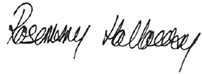 Rosemary Holloway